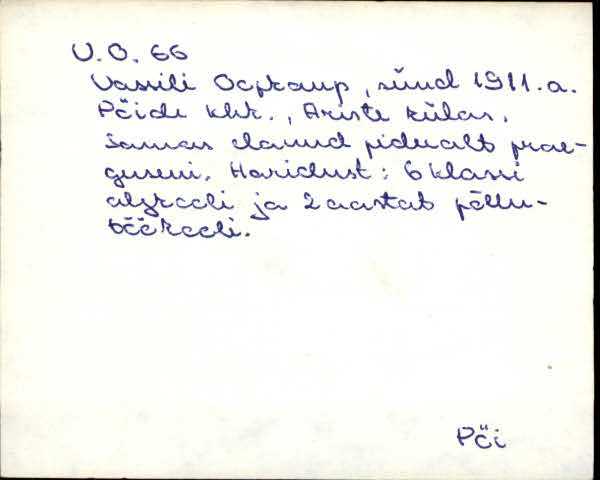 V.O. 66
Vassili Ooskaup, sünd 1911.a.
Pöide khk., Ariste külas.
Samas elanud pidevalt prae-
guseni. Haridust: 6 klassi
algkooli ja 2 aastat põllu-
töökooli.
Pöi